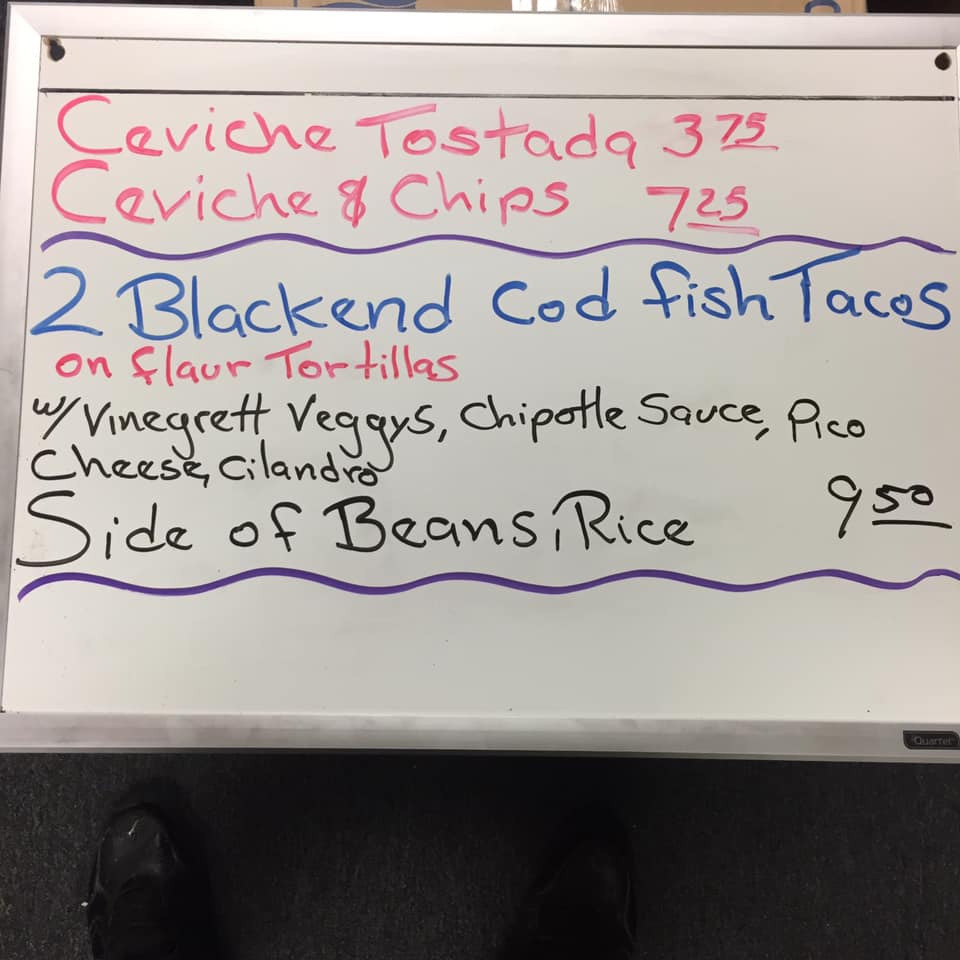 Ceviche Tostada 3 75
Ceviche & Chips 7 25
2 Blackend Cod fish Tacos
on flaur Tortillas
w/ Vinegrett Veggys, Chipotle Sauce, Pico
Cheese, Cilandro
Side of Beans, Rice 9 50
Quartet